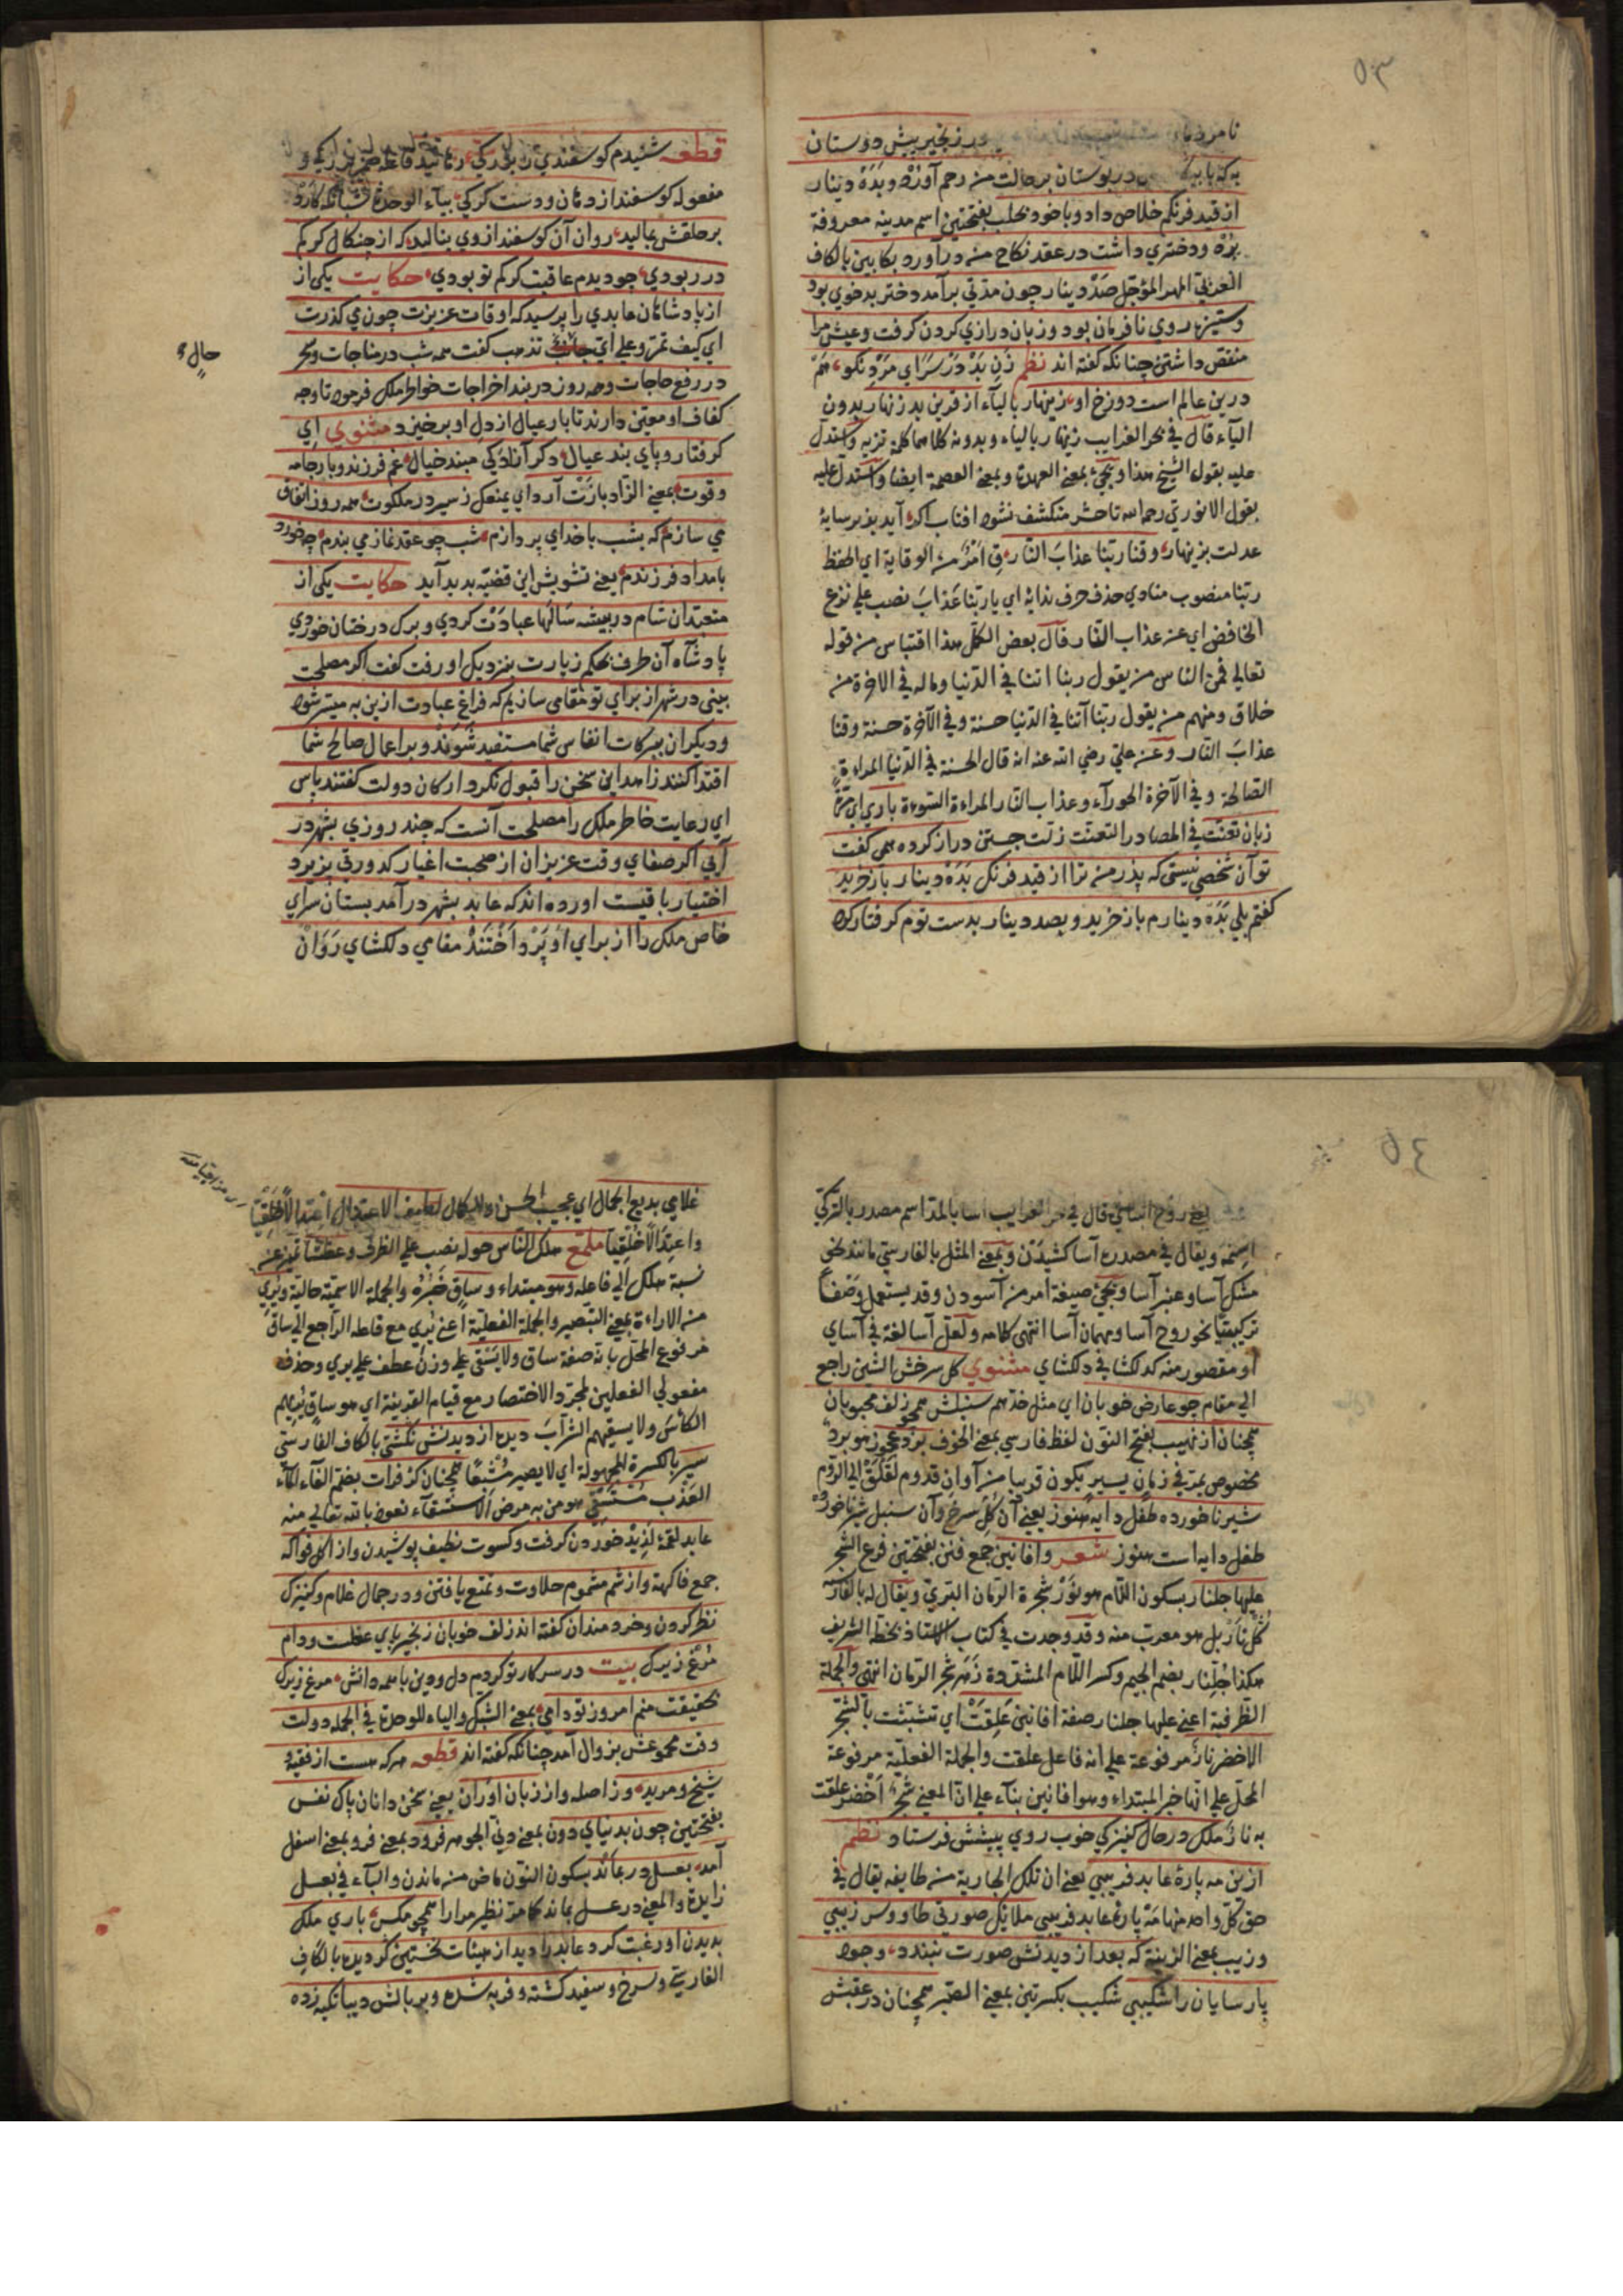 ٥٣
در زنجیر پیش دوستان
به که با بیگانگان در بوستان بر حالت من رحم آورد و بَدَهْ دینار
از قید فرنگم خلاص داد و با خود بحلب بفتحتین اسم مدینه معروفة
بُرْد و دختری داشت در عقد نکاح من در آورد بکابین بالکاف
العربی المهر المؤجل صَدْ دینار چون مدّتی برآمد دختر بدخوی بود
و ستیزه روی نافرمان بود و زبان درازی کردن کرفت و عیش مرا
منغص داشتی چنانکه کفته اند نظم زَنِ بَدْ دَرْ سَرَای مَرْدِ نکو هَمْ
درین عالم است دوزخ او زینهار بالیاء از قرین بد زنهار بدون
الیاء قال فی بحر الغرایب زینهار بالیاء و بدونه کلاهما کلمة تنزیه و استدل
علیه بقول الشیخ هذا و یجیء بمعنی العهد و بمعنی العصمة ایضا و استدل علیه
بقول الانوری رحمه الله تا حشر منکشف نشود افتاب اکر آید بزیر سایهٔ
عدلت بزینهار وقنا ربّنا عذابَ النّار قِ امْرٌ من الوقایة ای احفظ
ربّنا منصوب منادی حذف حرف ندائه ای یا ربّنا عَذابَ نصب علی نزع
الخافض ای عن عذاب النّار قال بعض الکمّل هذا اقتباس من قوله
تعالی فمن النّاس من یقول ربنا اتنا فی الدّنیا وما له فی الاخرة من
خلاق ومنهم من یقول ربّنا آتنا فی الدّنیا حسنة وفی الآخرة حسنة وقنا
عذابَ النّار وعن علیّ رضی الله عنه انه قال الحسنة فی الدّنیا المراءة
الصّالحة وفی الآخرة الحورآء وعذاب النّار المراءة السّوء باری ای مرّة
زبان تعنّت فی المصادر التعنّت زلّت جستن دراز کرده همی کفت
تو آن شخصی نیستی که پذر من ترا از قید فرنک بَدَهْ دینار باز خرید
کفتم بلی بَدَه دینارم باز خرید و بصد دینار بدست تو م کرفتار کرد
قطعه شنیدم کوسفندی را بزرکی
مفعوله کوسفند از دهان و دست کرکی بیآء الوحدة شبانکه کارد
بر حلقش بمالید روان آن کوسفند از وی بنالید که از چنکال کرکم
در ربودی چو دیدم عاقبت کرکم تو بودی حکایت یکی از
از پادشاهان عابدی را پرسید که اوقات عزیزت چون می کذرت
ای کیف تمرّ وعلی ایّ تذهب کفت همه شب در مناجات و سحر
حال
در رفع حاجات و همه روز در بند اخراجات خواطر ملک فرمود تا وجه
کفاف او معیّن دارند تا بار عیال از دل او برخیزد مثنوی ای
کرفتار و پای بند عیال دکر آزادکی مبند خیال غم فرزند و بار جامه
و قوت بمعنی الزّاد بازَتْ آرد ای یمنعک ز سیر در ملکوت همه روز اتفاق
می سازم که بشب با خدای پردازم شب چو عقد نماز می بندم چه خورد
بامداد فرزندم یعنی تشویش این قضیّه بدید آید حکایت یکی از
متعبّدان شام در بیشه سَالها عبادَت کردی و برک درختان خوردی
پادشاه آن طرف بحکم زیارت بنزدیک او رفت کفت اکر مصلحت
بینی در شهر از برای تو مقامی سازیم که فراغ عبادت ازین به میسّر شود
و دیکران ببرکات انفاس شما مستفید شوند و بر اعمال صالح شما
اقتدا کنند زاهد این سخن را قبول نکرد ارکان دولت کفتند پاس
ای رعایت خاطر ملک را مصلحت آنست که چند روزی بشهر در
آیی اکر صفای وقت عزیزان از صحبت اغیار کدورتی پزیرد
اختیار باقیست اورده اند که عابد بشهر در آمد بستان سرای
خاص ملک را از برای او پَرْدَاخْتَنْدْ مقامی دلکشای رَوَانْ
٥٤
یعنی روح آسا قال فی بحر الغرایب آسا بالمدّ اسم مصدر بالترکی
اسنمه و یقال فی مصدره آسا کشیدَن و بمعنی المثل بالفارسی مانند نحو
مشک آسا و عنبر آسا و یجیء صیغة امر من آسودن وقد یستعمل وصفاً
ترکیبیّا نحو روح آسا و مهمان آسا انتهی کلامه ولعلّ آسا لغة فی آسای
او مقصور منه کدلکشا فی دلکشای مثنوی کل سرخش الشین راجع
الی مقام چو عارض خوبان ای مثل خدّهم سنبلش همچو زلف محبوبان
همچنان از نهیب بفتح النّون لفظ فارسی بمعنی الخوف برد عجوز هو بردٌ
مخصوص یمرّ فی زمان یسیر یکون قریبا من آوان قدوم لَقْلَقْ الی الرّوم
شیر ناخورده طفل دایه هنوز یعنی آن کُلِ سُرخ و آن سنبل شیر ناخورده
طفل دایه است هنوز شعر وافانین جمع فنن بفتحتین فرع الشّجر
علیها جلنار بسکون اللّام هو نَوْرُ شجرة الرّمان البرّیّ و یقال له بالفارسیّه
کُلْنَار بل هو معرّب منه وقد وجدت فی کتاب الاستاذ بخطه الشریف
هکذا جُلِّنار بضم الجیم وکسر اللّام المشدّدة زَهر شجر الرّمان انتهی والجملة
الظّرفیة اعنی علیها جلنار صفة افانین عَلِقَتْ ای تشبّثت بالشّجر
الاخضر نارُ مرفوعة علی انه فاعل علقت والجملة الفعلیّة مرفوعة
المحلّ علی انّها خبر المبتداء وهو افانین بنآء علی انّ المعنی شَجَرٌ اَخْضَر علقت
به نارٌ ملک در حال کنیزکی خوب روی پیشش فرستاد نظم
ازین مه پارهٔ عابد فریبی یعنی ان تلک الجاریة من طایفه یقال فی
حقّ کلّ واحد منها مَهْ پارهٔ عابد فریبی ملایک صورتی طاووس زیبی
وزیب بمعنی الزینة که بعد از دیدنش صورت نبندد وجود
پارسایان را شکیبی شکیب بکسرتین بمعنی الصّبر همچنان در عقبش
غلامی بدیع الجمال ای عجیب الحسن والکمال لطیف الاعتدال اعْتِدالاً خَلْقِیّا
واعتِدالاً خُلُقیّا ملمّع هلک النّاس حوله نصب علی الظّرف وعطشاً تمییز عن
نسبة هلک الی فاعله وهو مبتداء وساقٍ خَبَرُهُ والجملة الاسمیّة حالیّة ویُرِی
من الاراءة بمعنی التّبصیر والجملة الفعلیّة اعنی یُرِی مع فاعله الرّاجع الی ساق
مرفوع المحلّ بانّه صفة ساق ولا یَسْقِی علی وزن عطف علی یری وحذف
مفعولی الفعلین لمجرّد الاختصار مع قیام القرینة ای هو ساقٍ یُرِیهم
الکأسَ ولا یسقیهم الشّرابَ دیده از دیدنش نکشتی بالکاف الفارسیّ
سیر بالکسرة المجهولة ای لا یصیر مُشْبَعًا همچنان کز فرات بضمّ الفآء المآء
العَذْب مُسْتَسْقِی هو من به مرض الاستسقآء نعوذ بالله تعالی منه
عابد لقمهٔ لَذِیذْ خوردن کرفت و کسوت نظیف پوشیدن و از اکل فواکه
جمع فاکهة و از شم مشموم حلاوت و تمتّع یافتن و در جمال غلام و کنیزک
نظر کردن و خردمندان کفته اند زلف خوبان زنجیر پای عقلست و دام
مُرْغِ زیرک بیت در سر کار تو کردم دل و دین با همه دانش مرغ زیرک
بحقیقت منم امروز تو دامی بمعنی الشبک والیاء للوحدة فی الجمله دولت
وقت مجموعش بزوال آمد چنانکه کفته اند قطعه هر که هست از فقیه و
شیخ و مرید وز زبان اوران یعنی سخن دانان پاک نفس
بفتحتین چون بدنیای دون بمعنی دنیّ الجوهر فرود بمعنی فرو بمعنی اسفل
آمد بعسل در بماند بسکون النّون ماض من ماندن والبآء فی بعسل
زایدة والمعنی در عسل بماند کما مرّ نظیره مرارا همچو مکس باری ملک
بدیدن او رغبت کرد عابد را دید از هیئات نخستین کردیده بالکاف
الفارسیّ و سرخ و سفید کشته و فربه شده و بر بالش دیبا تکیه زده